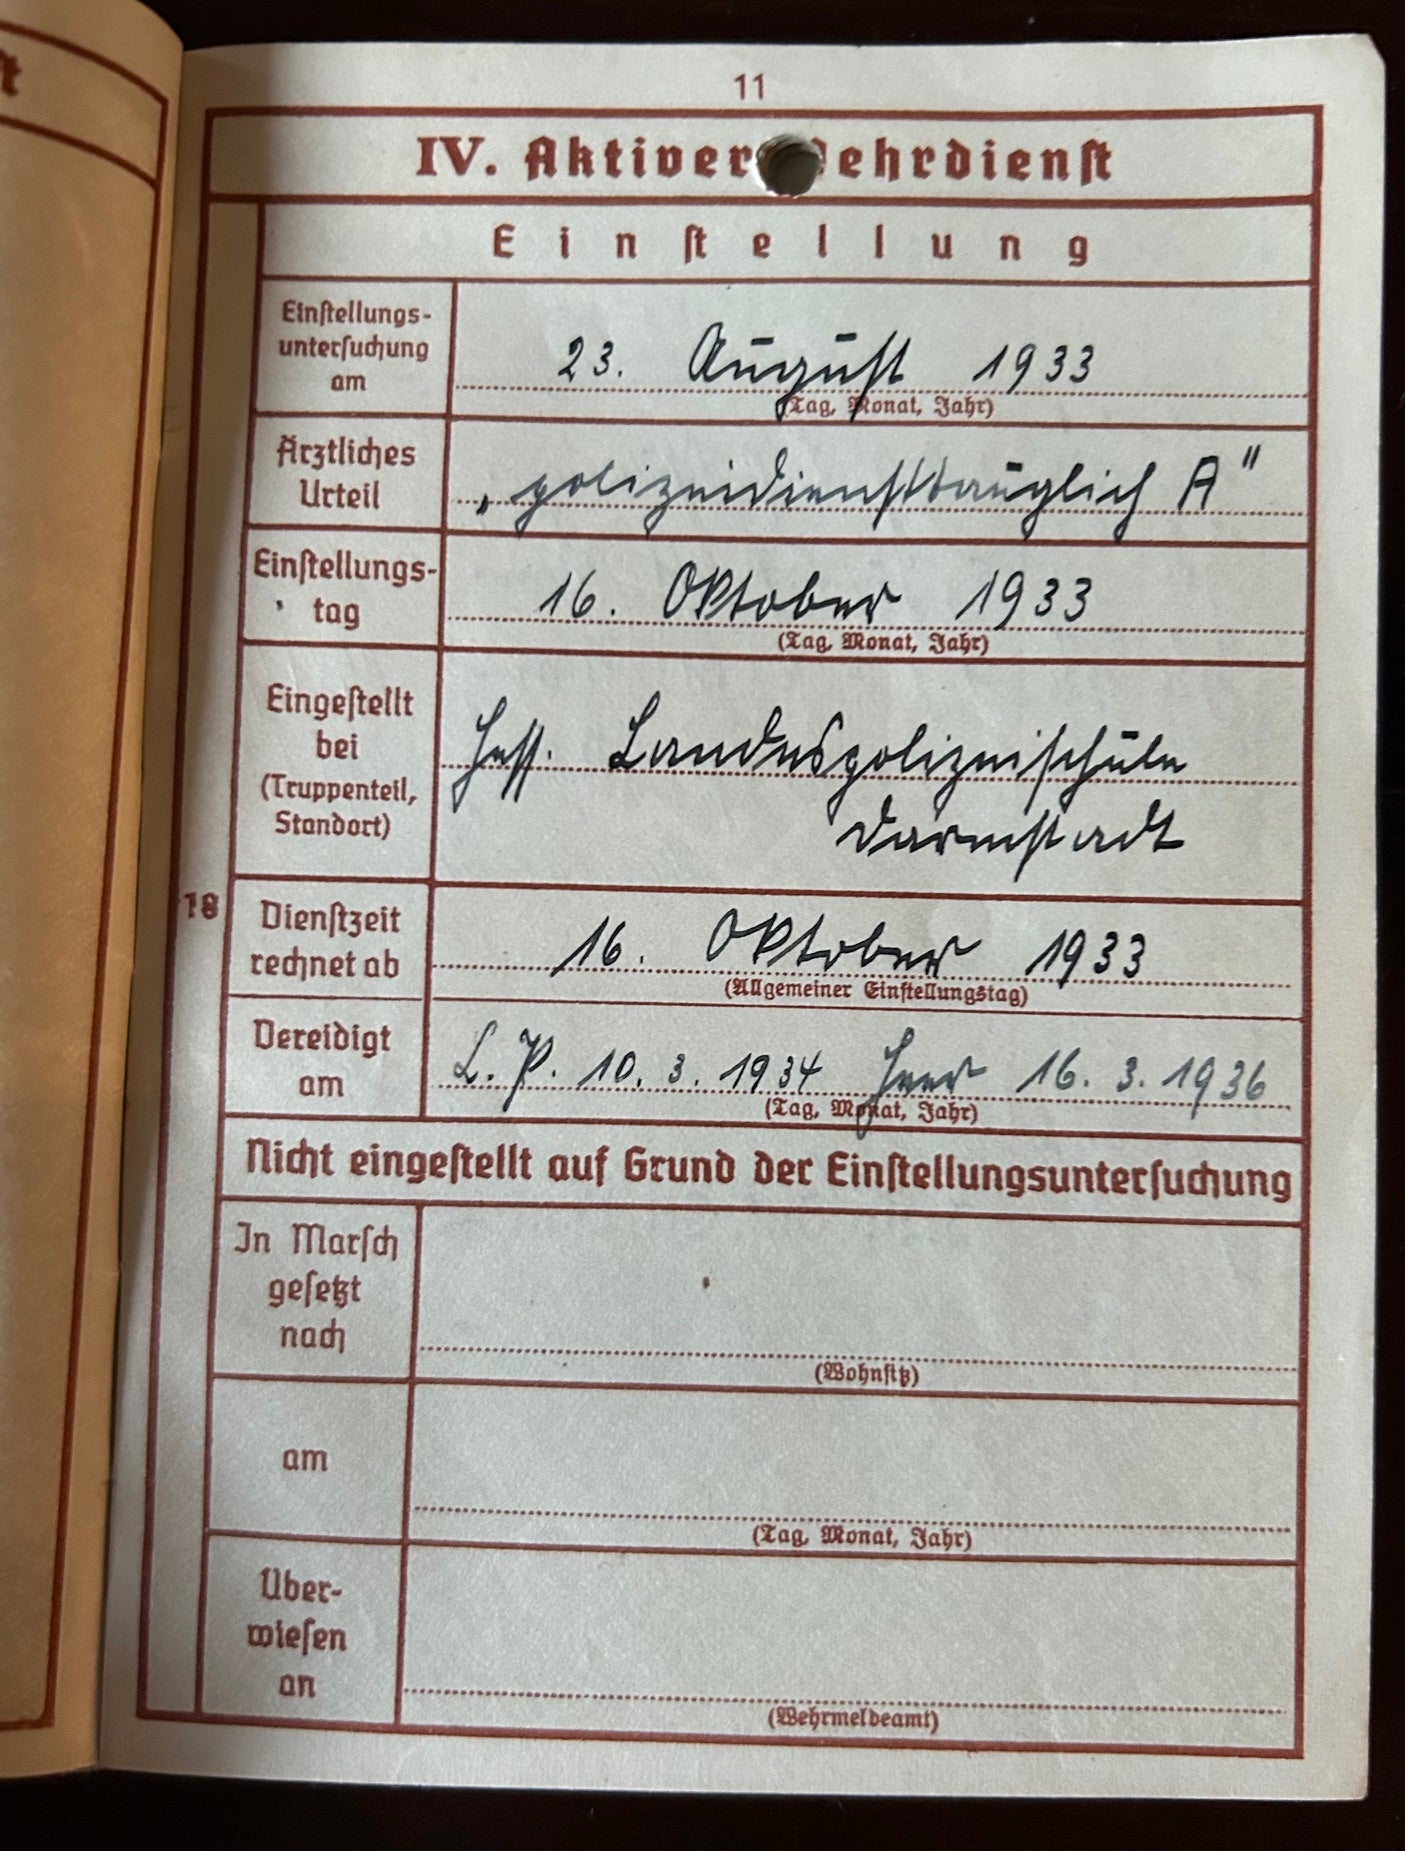 ſt
11
IV. Aktiver Wehrdienſt
Einſtellung
Einſtellungs-
unterſuchung
am
23. August 1933
(Tag, Monat, Jahr)
Ärztliches
Urteil
„polizeidiensttauglich A"
Einſtellungs-
tag
16. Oktober 1933
(Tag, Monat, Jahr)
Eingeſtellt
bei
(Truppenteil,
Standort)
Hess. Landespolizeischule
Darmstadt
18
Dienſtzeit
rechnet ab
16. Oktober 1933
(Allgemeiner Einſtellungstag)
Vereidigt
am
L. P. 10. 3. 1934 Heer 16. 3. 1936
(Tag, Monat, Jahr)
Nicht eingeſtellt auf Grund der Einſtellungsunterſuchung
In Marſch
geſetzt
nach
(Wohnſitz)
am
(Tag, Monat, Jahr)
Über-
wieſen
an
(Wehrmeldeamt)